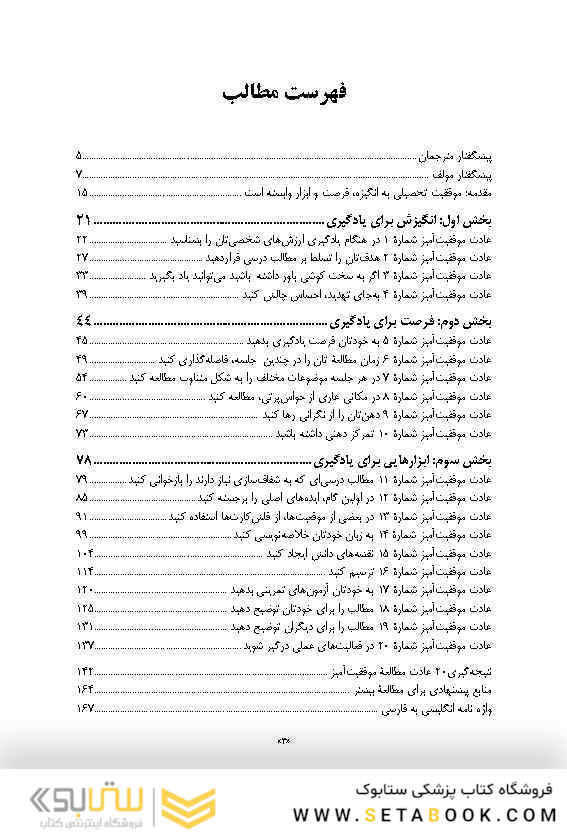 فهرست مطالب
پیشگفتار مترجمان ۵
پیشگفتار مولف ۷
مقدمه: موفقیت تحصیلی به انگیزه، فرصت و ابزار وابسته است ۱۵
بخش اول: انگیزش برای یادگیری ۲۱
عادت موفقیت‌آمیز شمارهٔ ۱ در هنگام یادگیری ارزش‌های شخصی‌تان را بشناسید ۲۲
عادت موفقیت‌آمیز شمارهٔ ۲ هدف‌تان را تسلط بر مطالب درسی قراردهید ۲۷
عادت موفقیت‌آمیز شمارهٔ ۳ اگر به سخت کوشی باور داشته باشید می‌توانید یاد بگیرید ۳۳
عادت موفقیت‌آمیز شمارهٔ ۴ به‌جای تهدید، احساس چالش کنید ۳۹
بخش دوم: فرصت برای یادگیری ۴۴
عادت موفقیت‌آمیز شمارهٔ ۵ به خودتان فرصت یادگیری بدهید ۴۵
عادت موفقیت‌آمیز شمارهٔ ۶ زمان مطالعهٔ تان را در چندین جلسه، فاصله‌گذاری کنید ۴۹
عادت موفقیت‌آمیز شمارهٔ ۷ در هر جلسه موضوعات مختلف را به شکل متناوب مطالعه کنید ۵۴
عادت موفقیت‌آمیز شمارهٔ ۸ در مکانی عاری از حواس‌پرتی، مطالعه کنید ۶۰
عادت موفقیت‌آمیز شمارهٔ ۹ ذهن‌تان را از نگرانی رها کنید ۶۷
عادت موفقیت‌آمیز شمارهٔ ۱۰ تمرکز ذهنی داشته باشید ۷۳
بخش سوم: ابزارهایی برای یادگیری ۷۸
عادت موفقیت‌آمیز شمارهٔ ۱۱ مطالب درسی‌ای که به شفاف‌سازی نیاز دارند را بازخوانی کنید ۷۹
عادت موفقیت‌آمیز شمارهٔ ۱۲ در اولین گام، ایده‌های اصلی را برجسته کنید ۸۵
عادت موفقیت‌آمیز شمارهٔ ۱۳ در بعضی از موقعیت‌ها، از فلش‌کارت‌ها استفاده کنید ۹۱
عادت موفقیت‌آمیز شمارهٔ ۱۴ به زبان خودتان خلاصه‌نویسی کنید ۹۹
عادت موفقیت‌آمیز شمارهٔ ۱۵ نقشه‌های دانش ایجاد کنید ۱۰۴
عادت موفقیت‌آمیز شمارهٔ ۱۶ ترسیم کنید ۱۱۴
عادت موفقیت‌آمیز شمارهٔ ۱۷ به خودتان آزمون‌های تمرینی بدهید ۱۲۰
عادت موفقیت‌آمیز شمارهٔ ۱۸ مطالب را برای خودتان توضیح دهید ۱۲۵
عادت موفقیت‌آمیز شمارهٔ ۱۹ مطالب را برای دیگران توضیح دهید ۱۳۱
عادت موفقیت‌آمیز شمارهٔ ۲۰ در فعالیت‌های عملی درگیر شوید ۱۳۷
نتیجه‌گیری ۲۰ عادت مطالعهٔ موفقیت‌آمیز ۱۴۲
منابع پیشنهادی برای مطالعهٔ بیشتر ۱۶۴
واژه نامه انگلیسی به فارسی ۱۶۷
«۳»
فروشگاه کتاب پزشکی ستابوک
WWW.SETABOOK.COM
ستابوک
فروشگاه اینترنتی کتاب